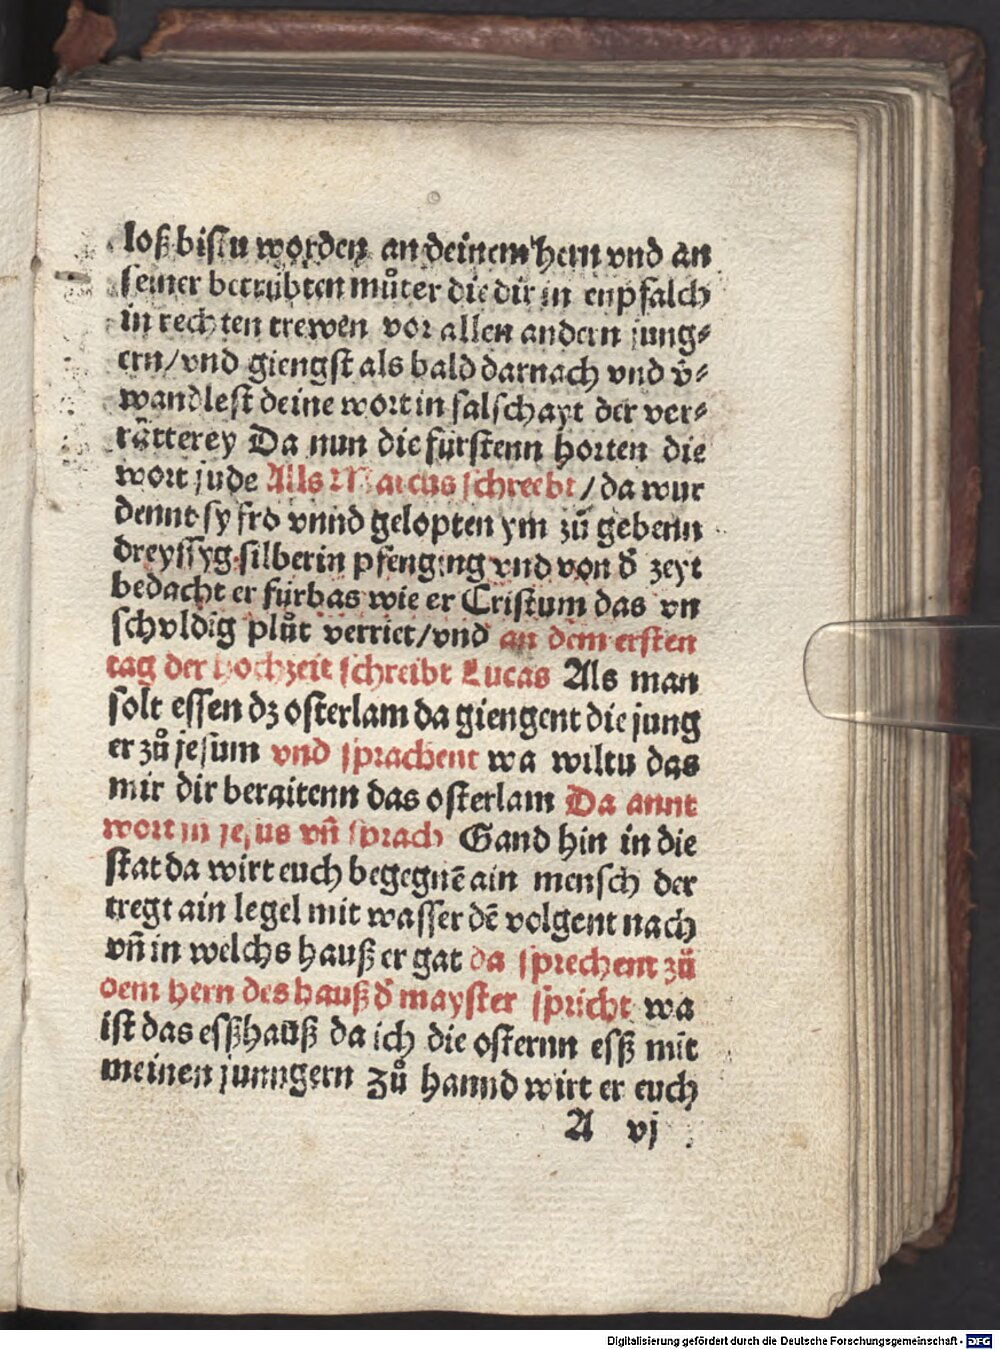 loß bistu worden an deinem hern vnd an
seiner betrübten můter die dir in enpfalch
in rechten trewen vor allen andern jung⸗
ern/vnd giengst als bald darnach vnd v̄⸗
wandlest deine wort in falschayt der ver⸗
rätterey Da nun die fürstenn horten die
wort jude Alls Marcus schreebt/da wur
dennt sy fro vnnd gelopten ym zů gebenn
dreyssyg silberin pfenging vnd von d̄ zeyt
bedacht er fürbas wie er Cristum das vn
schvldig plůt verriet/vnd an dem ersten
tag der hochzeit schreibt Lucas Als man
solt essen dz osterlam da giengent die jung
er zů jesum vnd sprachent wa wiltu das
mir dir beraitenn das osterlam Da annt
wort in jesus vn̄ sprach Gand hin in die
stat da wirt euch begegnē ain mensch der
tregt ain legel mit wasser dē volgent nach
vn̄ in welchs hauß er gat da sprechent zů
dem hern des hauß d̄ mayster spricht wa
ist das eßhauß da ich die osternn esß mit
meinen junngern zů hannd wirt er euch
A vj
Digitalisierung gefördert durch die Deutsche Forschungsgemeinschaft - DFG